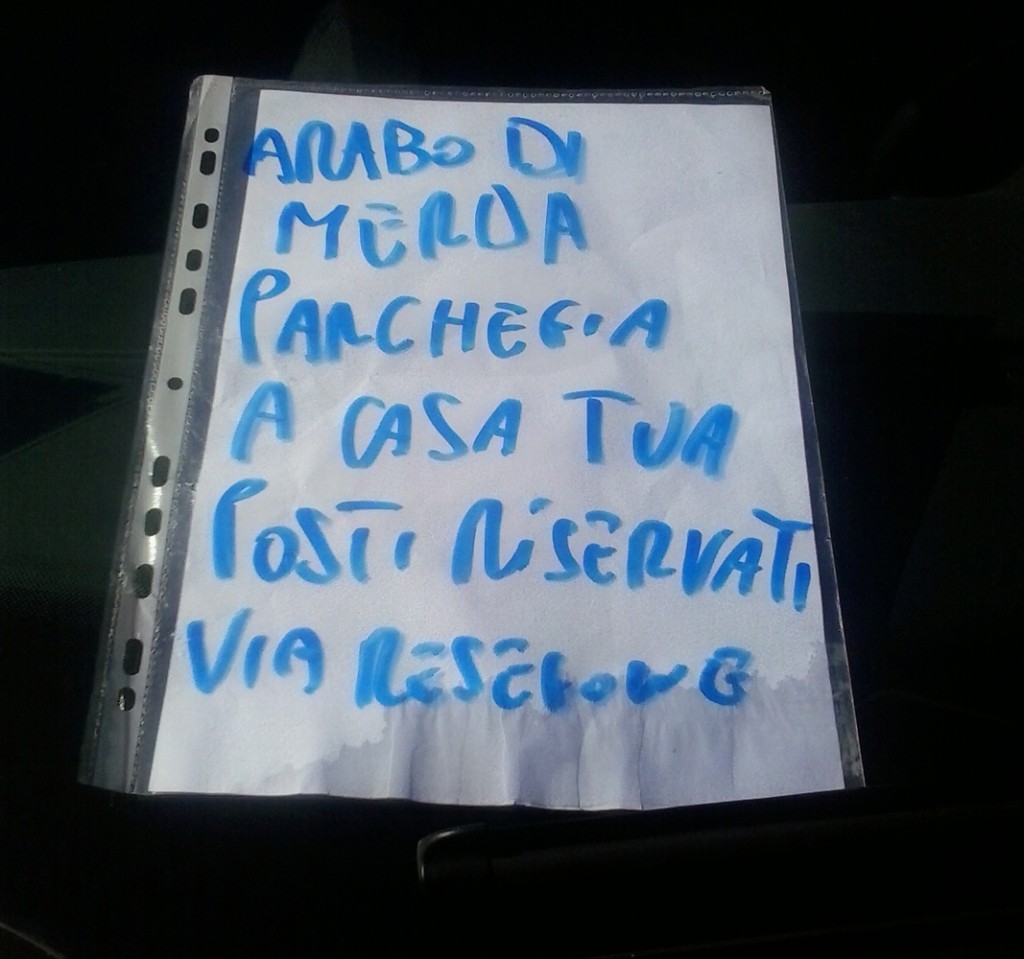 ARABO DI
MERDA
PARCHEGIA
A CASA TUA
POSTI RISERVATI
VIA RESEGONE